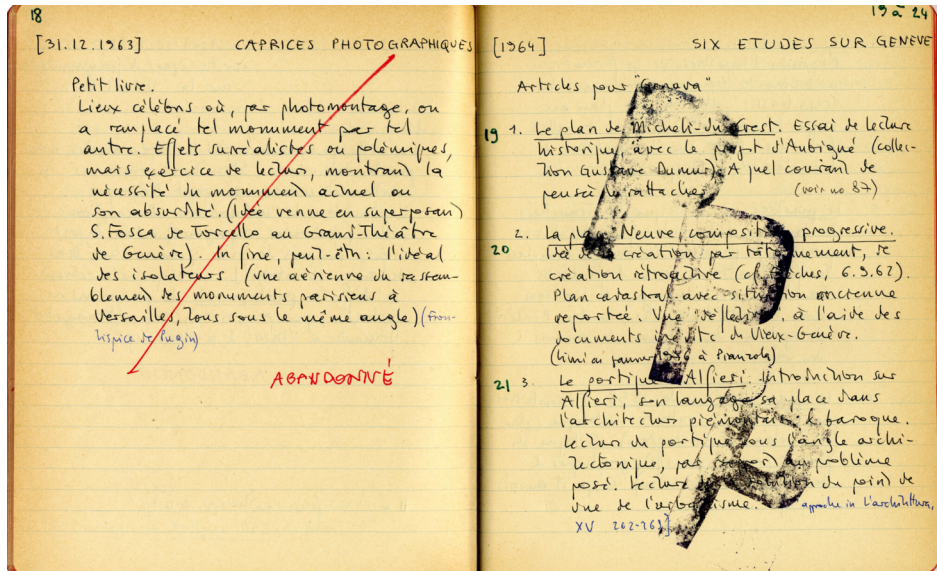 18
[31.12.1963] CAPRICES PHOTOGRAPHIQUES
Petit livre.
Lieux célèbres où, par photomontage, on
a remplacé tel monument par tel
autre. Effets surréalistes ou polémiques,
mais exercice de lecture, montrant la
nécessité du monument actuel ou
son absurdité. (Idée venue en superposant
S. Fosca de Torcello au Grand-Théâtre
de Genève). In fine, peut-être : l'idéal
des isolateurs (vue aérienne du rassem-
blement des monuments parisiens à
Versailles, tous sous le même angle) (fron-
tispice de Pugin)
ABANDONNÉ
19 à 24
[1964] SIX ETUDES SUR GENEVE
Articles pour "Genava"
19 1. Le plan de Micheli-du-Crest. Essai de lecture
historique avec le projet d'Aubigné (collec-
tion Gustave Dumur). A quel courant de
pensée le rattacher (voir no 87)
20 2. La place Neuve composition progressive.
Idée de la création par tâtonnement, de
création rétroactive (cf. fiches, 6.9.62).
Plan cadastral avec situation ancienne
reportée. Vue à l'aide des
documents du Vieux-Genève.
(limiai janvier à Pianzola)
21 3. Le portique Alfieri. Introduction sur
Alfieri, son langage sa place dans
l'architecture piémontaise & baroque.
Lecture du portique sous l'angle archi-
tectonique, par rapport au problème
posé. Lecture de la solution du point de
vue de l'urbanisme. approche in L'architettura,
XV 262-263]